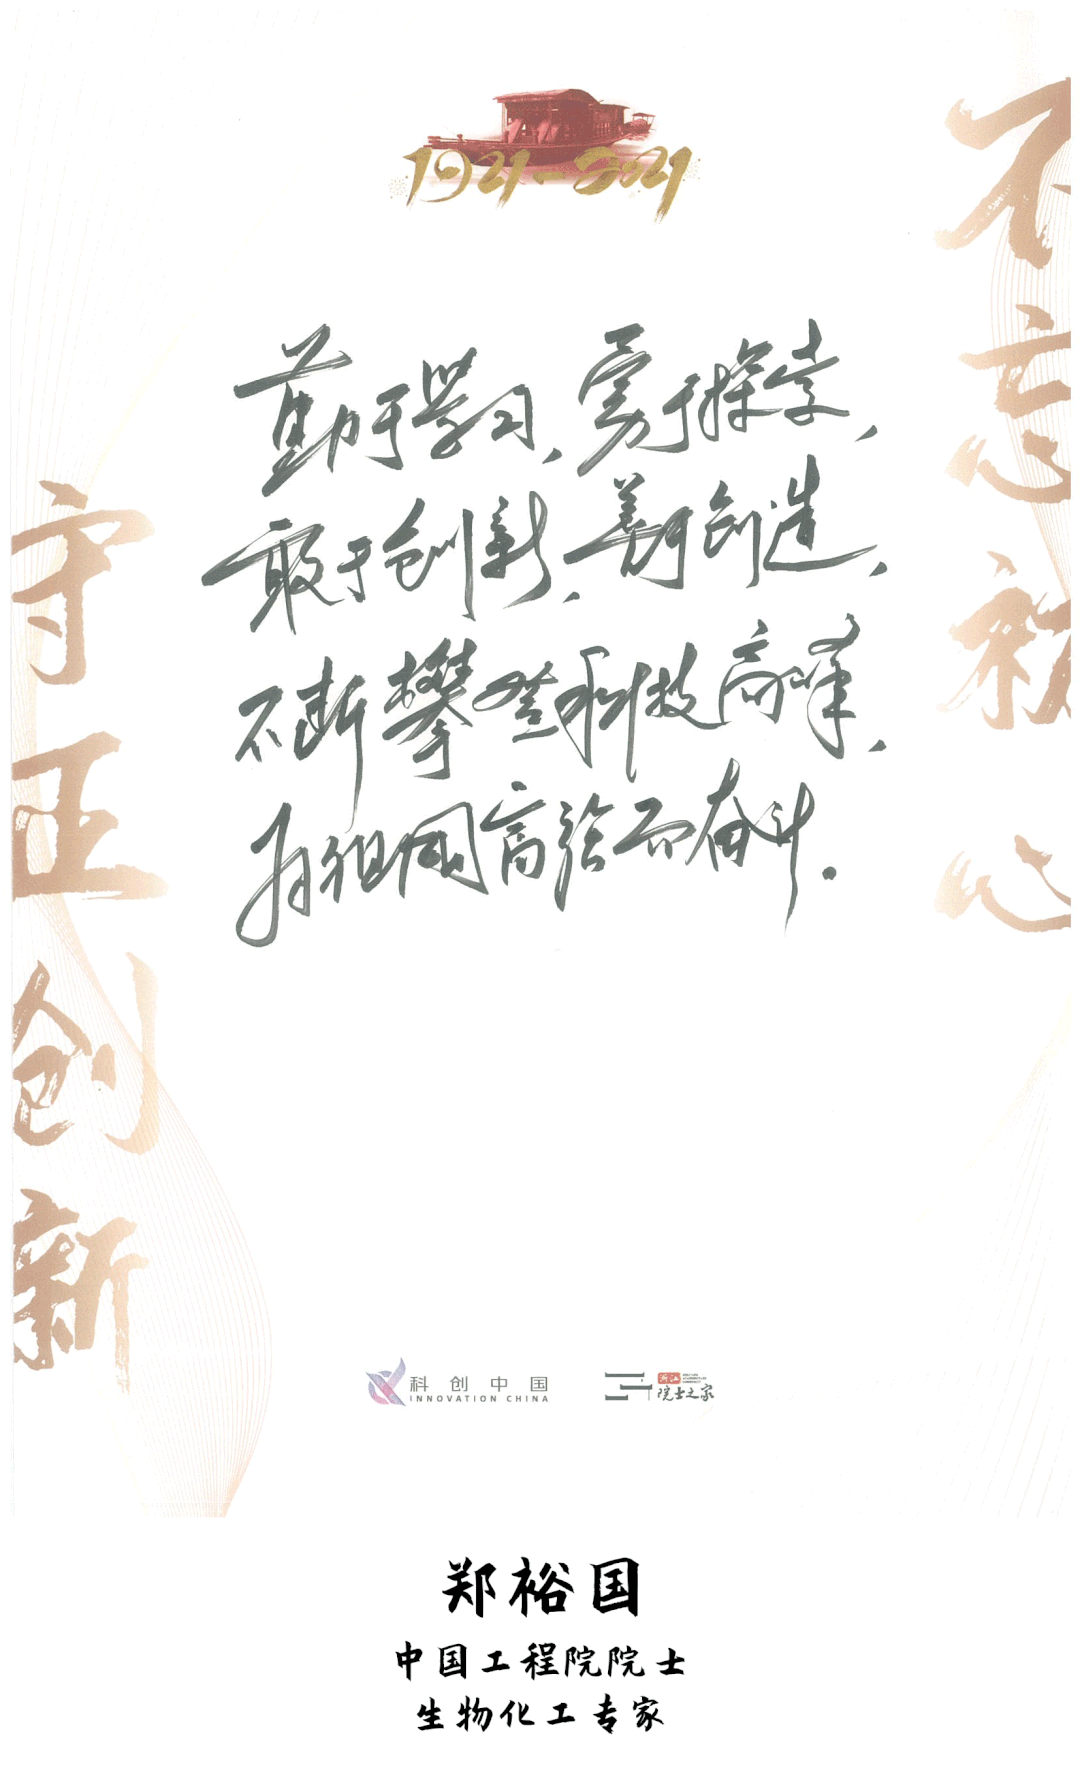 1921-2021
不忘初心
勤于学习,勇于探索,
敢于创新,善于创造,
不断攀登科技高峰,
为祖国富强而奋斗.
守正创新
科创中国
INNOVATION CHINA
浙江
院士之家
郑裕国
中国工程院院士
生物化工专家